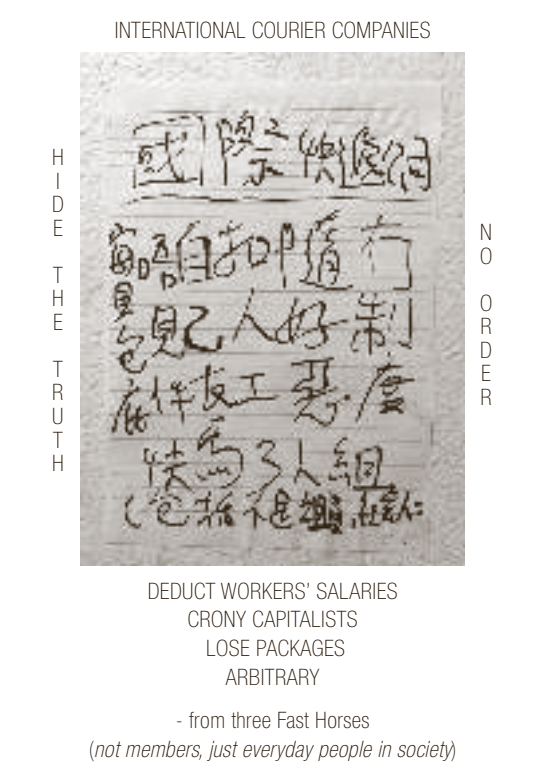 INTERNATIONAL COURIER COMPANIES
HIDE THE TRUTH
國際快遞
冇制度
隨好惡
扣人工
自己友
唔見件
包庇
快馬3人組
包括不是
NO ORDER
DEDUCT WORKERS’ SALARIES
CRONY CAPITALISTS
LOSE PACKAGES
ARBITRARY
- from three Fast Horses
(not members, just everyday people in society)